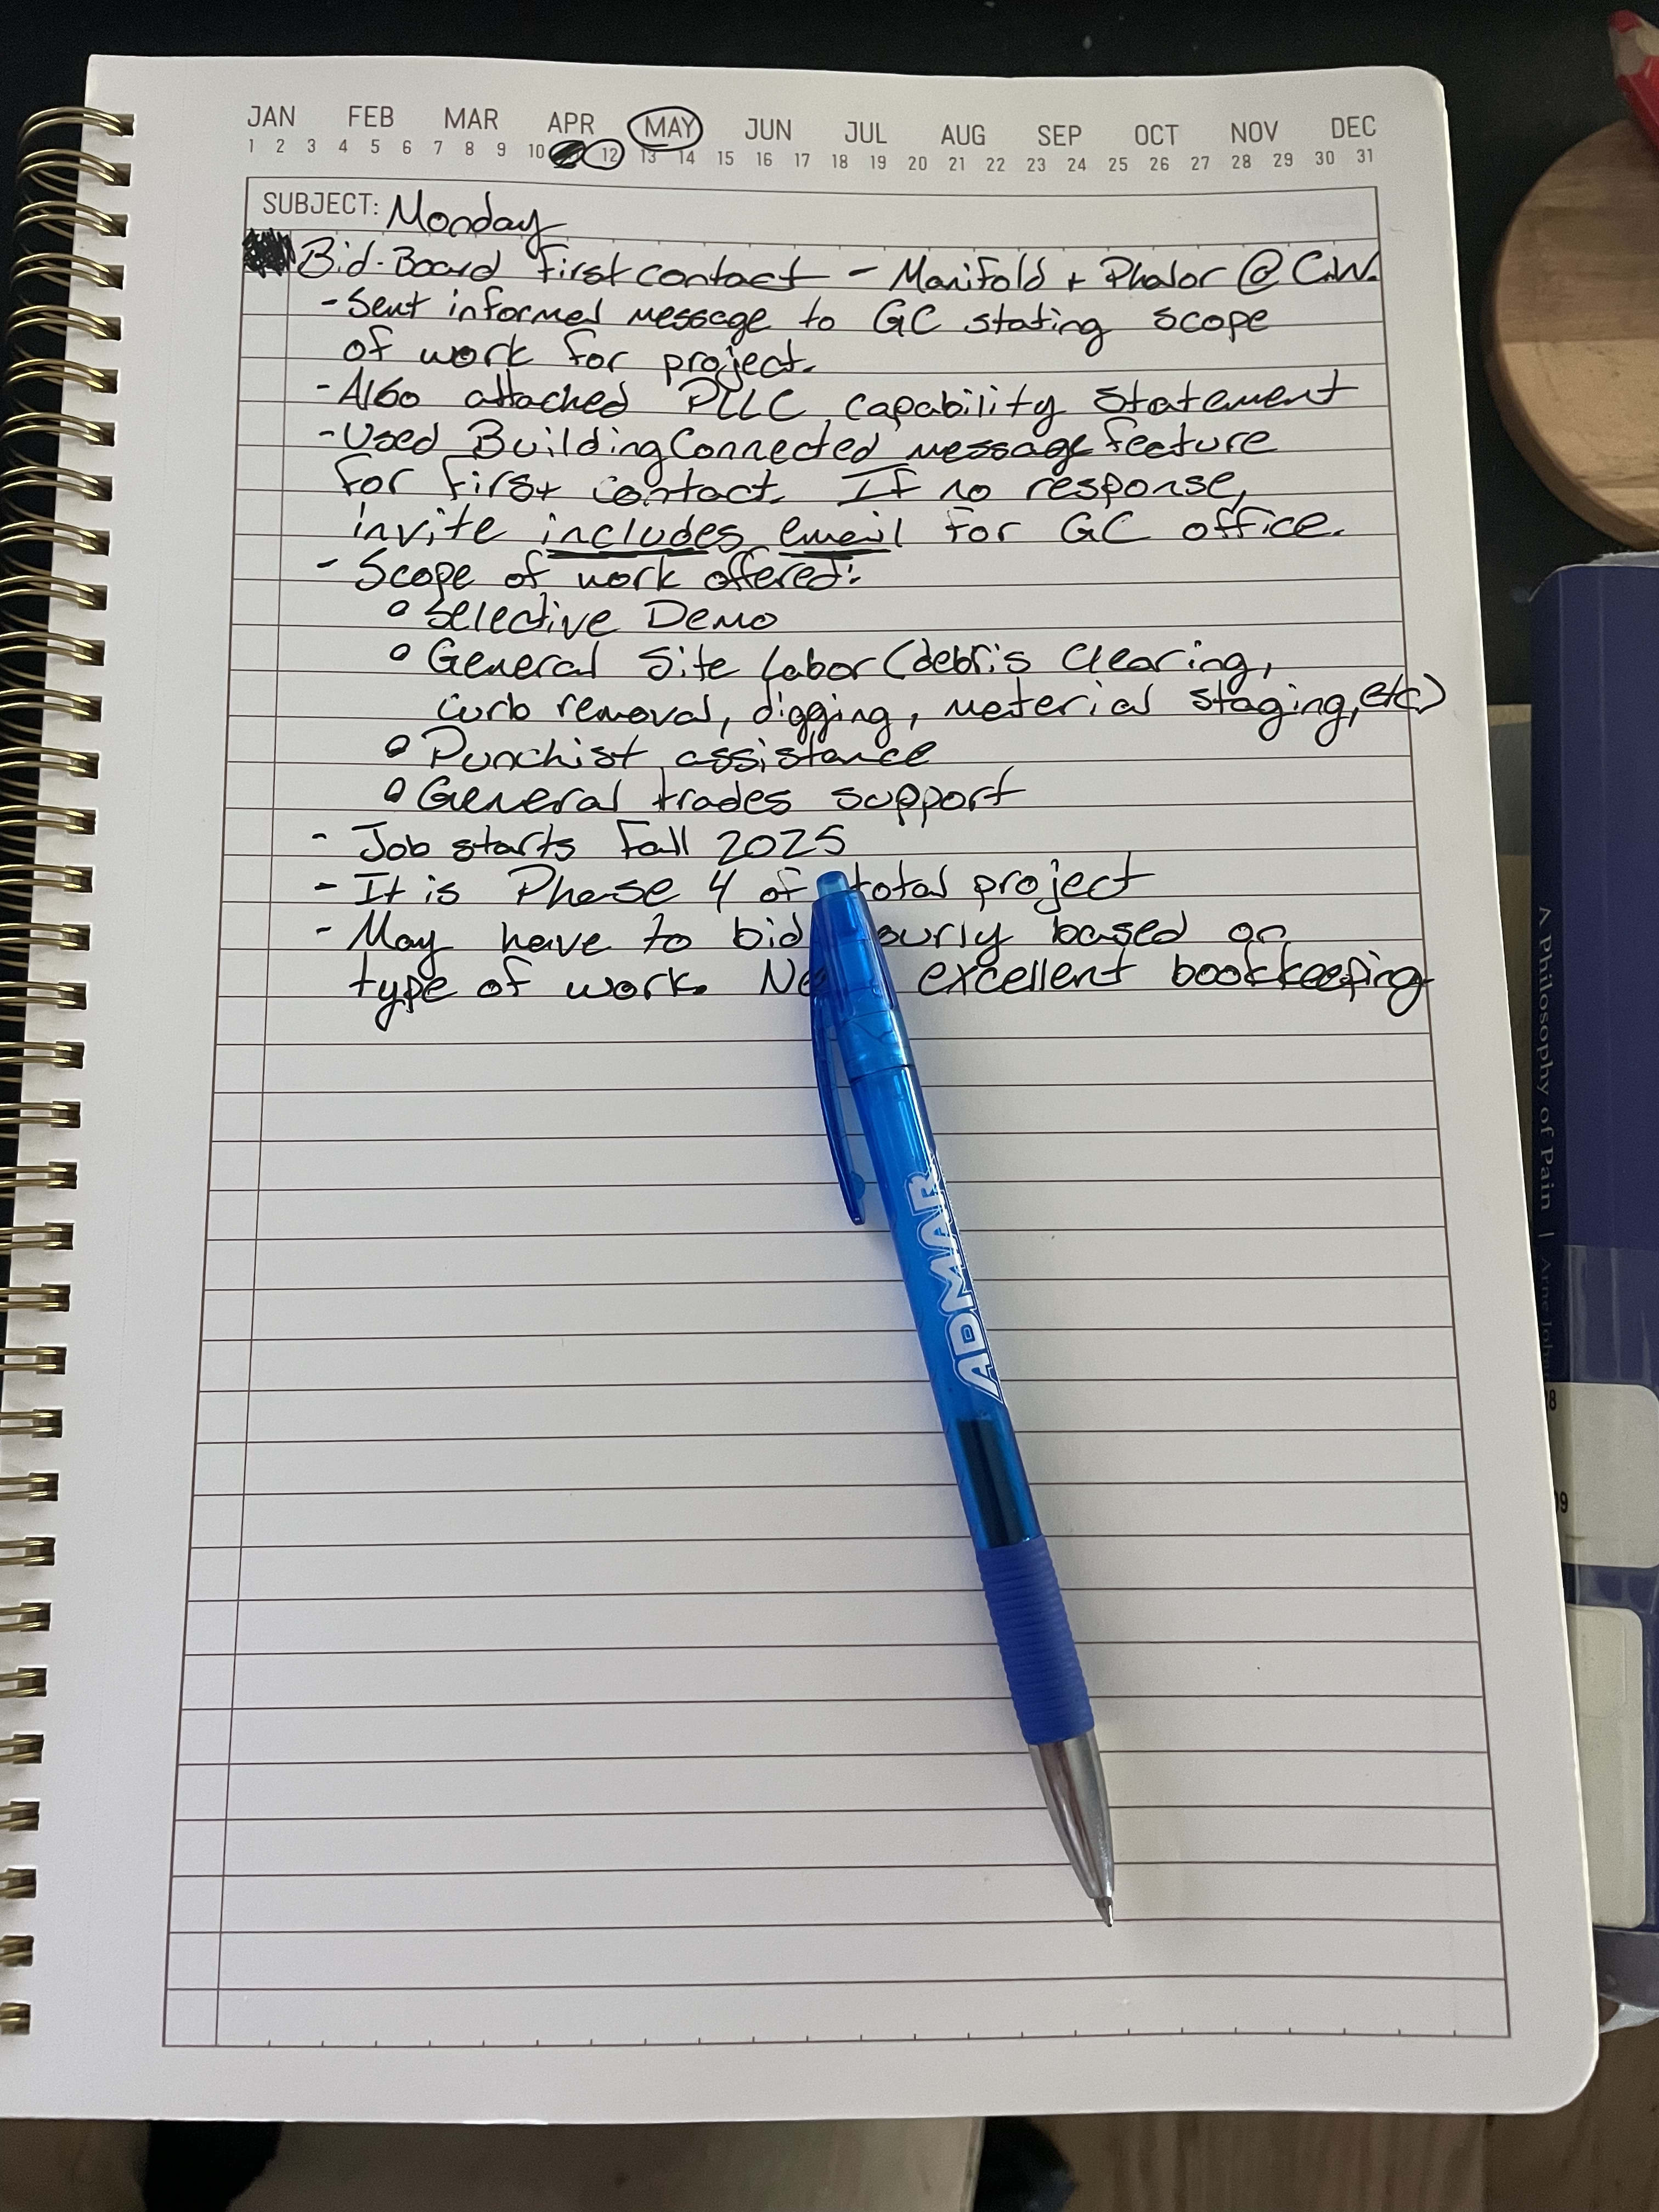 JAN FEB MAR APR MAY JUN JUL AUG SEP OCT NOV DEC
1 2 3 4 5 6 7 8 9 10 12 13 14 15 16 17 18 19 20 21 22 23 24 25 26 27 28 29 30 31
SUBJECT: Monday
Bid-Board first contact - Manifold + Phalor @ C.W.
- Sent informed message to GC stating scope
of work for project.
- Also attached PLLC capability statement
- Used BuildingConnected message feature
for first contact. If no response,
invite includes email for GC office.
- Scope of work offered:
Selective Demo
General Site Labor (debris clearing,
curb removal, digging, material staging, etc)
Punchist assistance
General trades support
- Job starts Fall 2025
- It is Phase 4 of total project
- May have to bid ourly based on
type of work. Ne excellent bookkeeping
ADMAR
A Philosophy of Pain | Arne